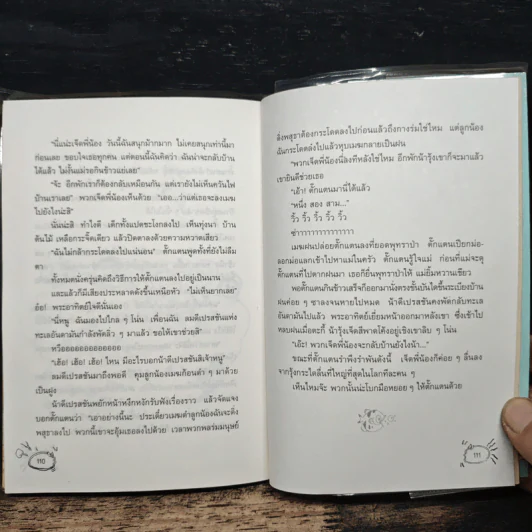 "นี่แน่ะเจ็ดพี่น้อง วันนี้ฉันสนุกม้ากมาก ไม่เคยสนุกเท่านี้มา
ก่อนเลย ขอบใจเธอทุกคน แต่ตอนนี้ฉันคิดว่า ฉันน่าจะกลับบ้าน
ได้แล้ว ไม่งั้นแม่รอกินข้าวแย่เลย"
"จ้ะ อีกพักเราก็ต้องกลับเหมือนกัน แต่เรายังไม่เห็นควันไฟ
บ้านเราเลย" พวกเจ็ดพี่น้องพูด "เออ...ว่าแต่เธอจะลงเมฆ
ไปยังไงน่ะสิ"
นั่นน่ะสิ ทำไงดี เด็กทั้งแปดชะโงกลงไป เห็นทุ่งนา บ้าน
ต้นไม้ เหลือกระจิ๊ดเดียว แล้วปิดตาลงด้วยความหวาดเสียว
"ฉันไม่กล้ากระโดดลงไปแน่นอน" ตั๊กแตนพูดทั้งที่ยังไม่ลืม
ตา
ทั้งหมดนั่งครุ่นคิดถึงวิธีการให้ตั๊กแตนลงไปอยู่เป็นนาน
และแล้วก็มีเสียงประหลาดดังขึ้นเหนือหัว "ไม่เห็นยากเลย"
อ๋อ! พระอาทิตย์ใจดีนั่นเอง
"นี่หนู ฉันมองไปไกล ๆ โน่น เพื่อนฉัน ลมดีเปรสชันแห่ง
ทะเลอันดามันกำลังพัดลิ่ว ๆ มาแล้ว ขอให้เขาช่วยสิ"
ทวีออออออออออออออ
"เฮ้อ! เฮ้อ! เฮ้อ! ไหน มีอะไรบอกน้าดีเปรสชันสิเจ้าหนู"
ลมดีเปรสชันมาถึงพอดี คุมลูกน้องเมฆก้อนดำ ๆ มาด้วย
เป็นฝูง
น้าดีเปรสชันพยักหน้าหงึกหงักรับฟังเรื่องราว แล้วจัดแจง
บอกตั๊กแตนว่า "เอาอย่างนี้นะ ประเดี๋ยวเมฆดำลูกน้องฉันจะดิ่ง
พสุธาลงไป พวกนี้เขาจะอุ้มเธอลงไปด้วย เวลาพวกพลร่มมนุษย์
110
ดิ่งพสุธาต้องกระโดดลงไปก่อนแล้วถึงกางร่มใช่ไหม แต่ลูกน้อง
ฉันกระโดดลงไปแล้วทุบเมฆกลายเป็นฝน
"พวกเจ็ดพี่น้องนี่ลงทีหลังใช่ไหม อีกพักน้ารุ้งเขาก็จะมาแล้ว
เขายินดีช่วยเธอ
"เอ้า! ตั๊กแตนมานี่ได้แล้ว
"หนึ่ง สอง สาม..."
วิ้ว วิ้ว วิ้ว วิ้ว วิ้ว
ซ่าาาาาาาาาาาาาาา
เมฆฝนปล่อยตั๊กแตนลงที่ยอดพุทราป่า ตั๊กแตนเปียกม่อ-
ลอกม่อแลกเข้าไปหาแม่ในครัว ตั๊กแตนรู้ใจแม่ ก่อนที่แม่จะดุ
ตั๊กแตนที่ไปตากฝนมา เธอก็ยื่นพุทราป่าให้ แม่ยิ้มหวานเชียว
พอตั๊กแตนกินข้าวเสร็จก็ออกมานั่งตรงขั้นบันไดขึ้นระเบียงบ้าน
ฝนค่อย ๆ ซาลงจนหายไปหมด น้าดีเปรสชันคงพัดกลับทะเล
อันดามันไปแล้ว พระอาทิตย์เยี่ยมหน้าออกมาหลังเขา ซึ่งเข้าไป
หลบฝนเมื่อตะกี้ น้ารุ้งเจ็ดสีพาดโค้งอยู่เชิงเขาลิบ ๆ โน่น
"เอ๊ะ! พวกเจ็ดพี่น้องจะกลับบ้านยังไงน้า..."
ขณะที่ตั๊กแตนรำพึงรำพันดังนี้ เจ็ดพี่น้องก็ค่อย ๆ ลื่นลง
จากรุ้งกระไดลื่นที่ใหญ่ที่สุดในโลกทีละคน ๆ
เห็นไหมจ๊ะ พวกนั้นน่ะโบกมือหยอย ๆ ให้ตั๊กแตนด้วย
111